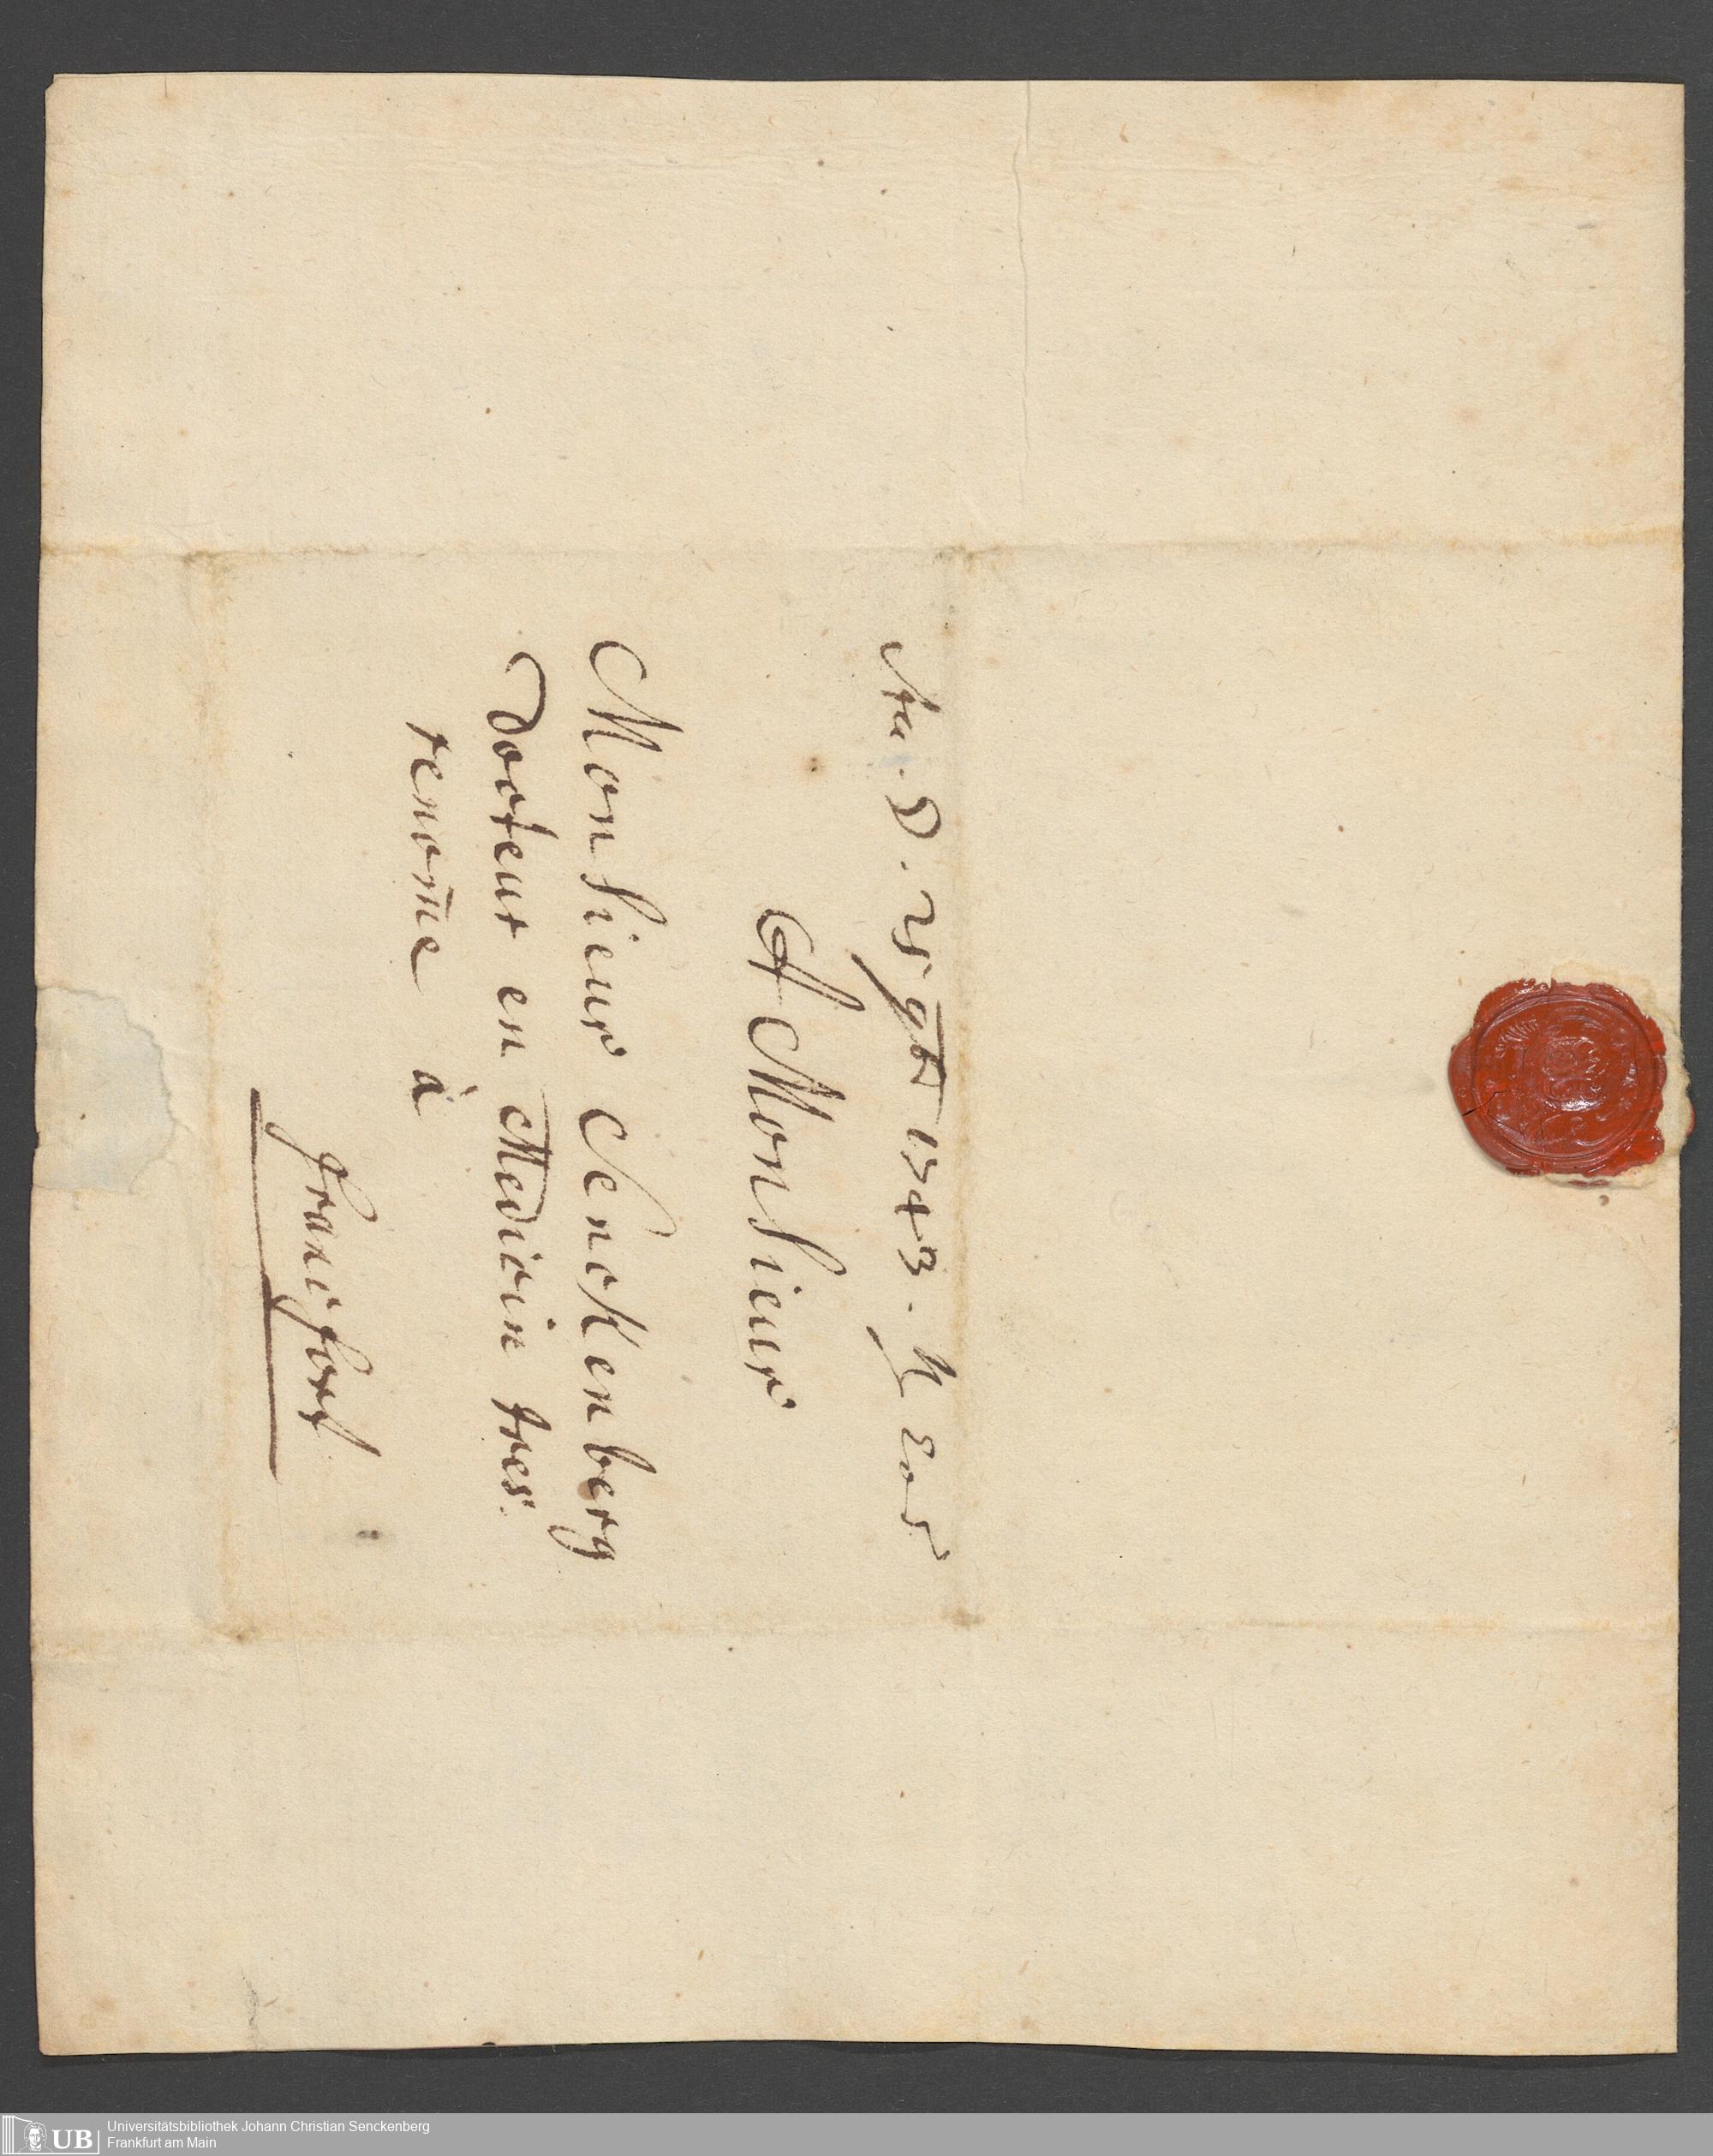 A Monsieur
Monsieur Senckenberg
Docteur en Medicin tres
renom̄e à
Francfort
Universitätsbibliothek Johann Christian Senckenberg
Frankfurt am Main
UB